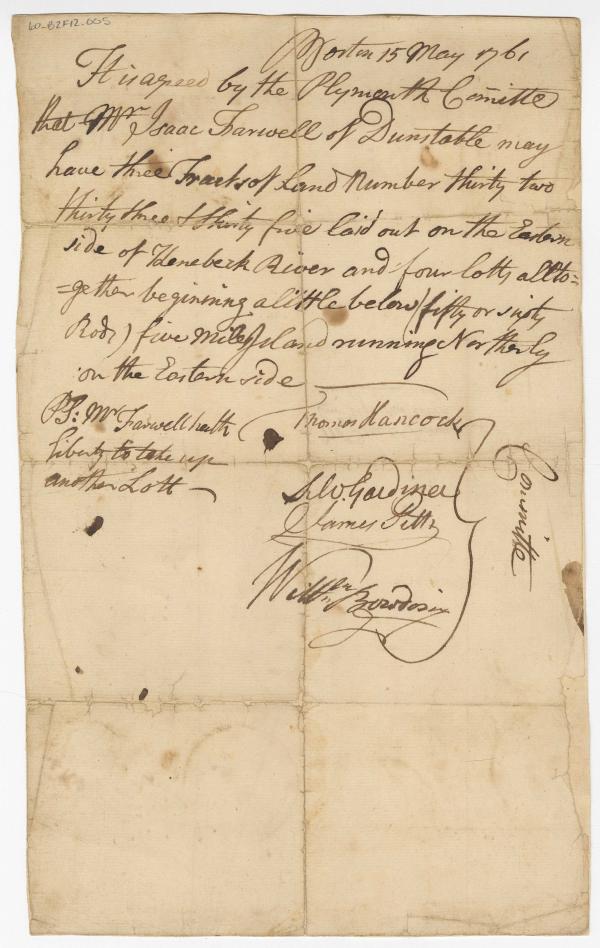 60-B2F12-005
Boston 15 May 1761
It is agreed by the Plymouth Comitte
that Mr. Isaac Farwell of Dunstable may
have three Tracts of Land Number thirty two
thirty three & thirty five laid out on the Eastern
side of Kenebeck River and four lotts allto=
=gether beginning a little below (fifty or sixty
Rods) five Mile Island running Northerly
on the Eastern side
PS: Mr Farwell hath
liberty to take up
another Lott
Thomas Hancock
Silv. Gardiner
James Pitts
Willm Bowdoin
Committe